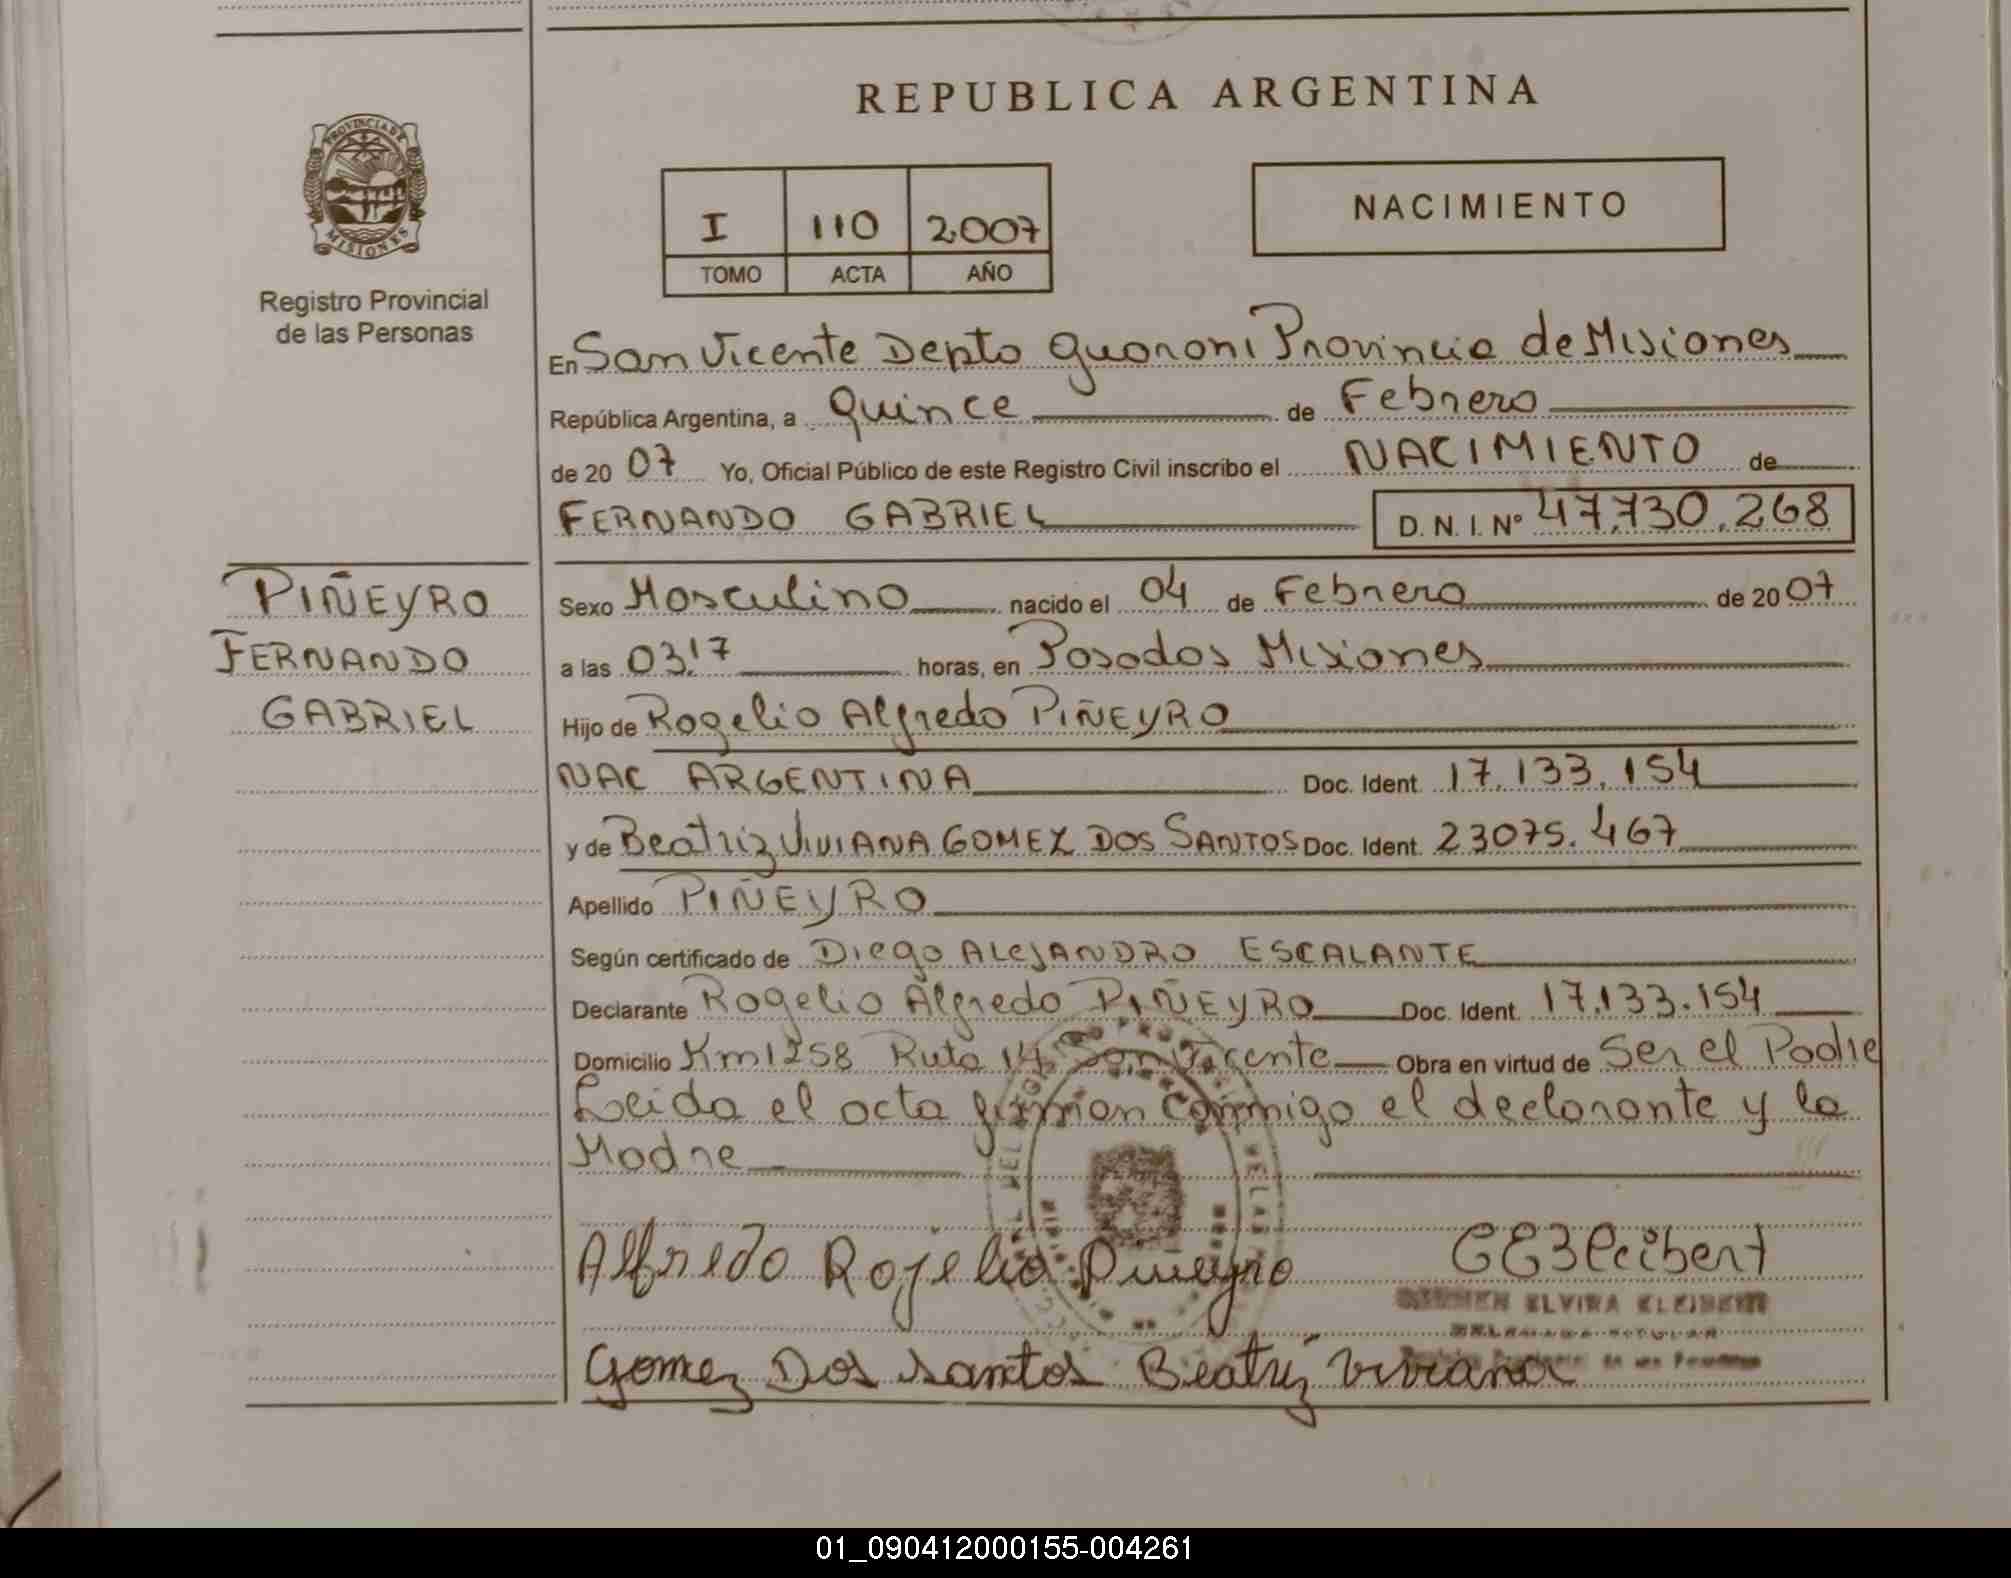 REPUBLICA ARGENTINA
PROVINCIA DE
MISIONES
Registro Provincial
de las Personas
I 110 2007
TOMO ACTA AÑO
NACIMIENTO
En San Vicente Depto Guarani Provincia de Misiones
República Argentina, a Quince de Febrero
de 20 07 Yo, Oficial Público de este Registro Civil inscribo el NACIMIENTO de
FERNANDO GABRIEL D. N. I. Nº 47.730.268
PIÑEYRO
FERNANDO
GABRIEL
Sexo Masculino nacido el 04 de Febrero de 20 07
a las 03.17 horas, en Posadas Misiones
Hijo de Rogelio Alfredo PIÑEYRO
NAC ARGENTINA Doc. Ident. 17.133.154
y de Beatriz VIVIANA GOMEZ DOS SANTOS Doc. Ident. 23075.467
Apellido PIÑEYRO
Según certificado de Diego ALEJANDRO ESCALANTE
Declarante Rogelio Alfredo PIÑEYRO Doc. Ident. 17.133.154
Domicilio Km 1258 Ruta 14 San Vicente Obra en virtud de Ser el Padre
Leida el acta firman conmigo el declarante y la
Madre
Alfredo Rojelio Piñeyro
CE3Kleibert
CARMEN ELVIRA KLEIBERT
Gomez Dos Santos Beatriz Viviana
01_090412000155-004261